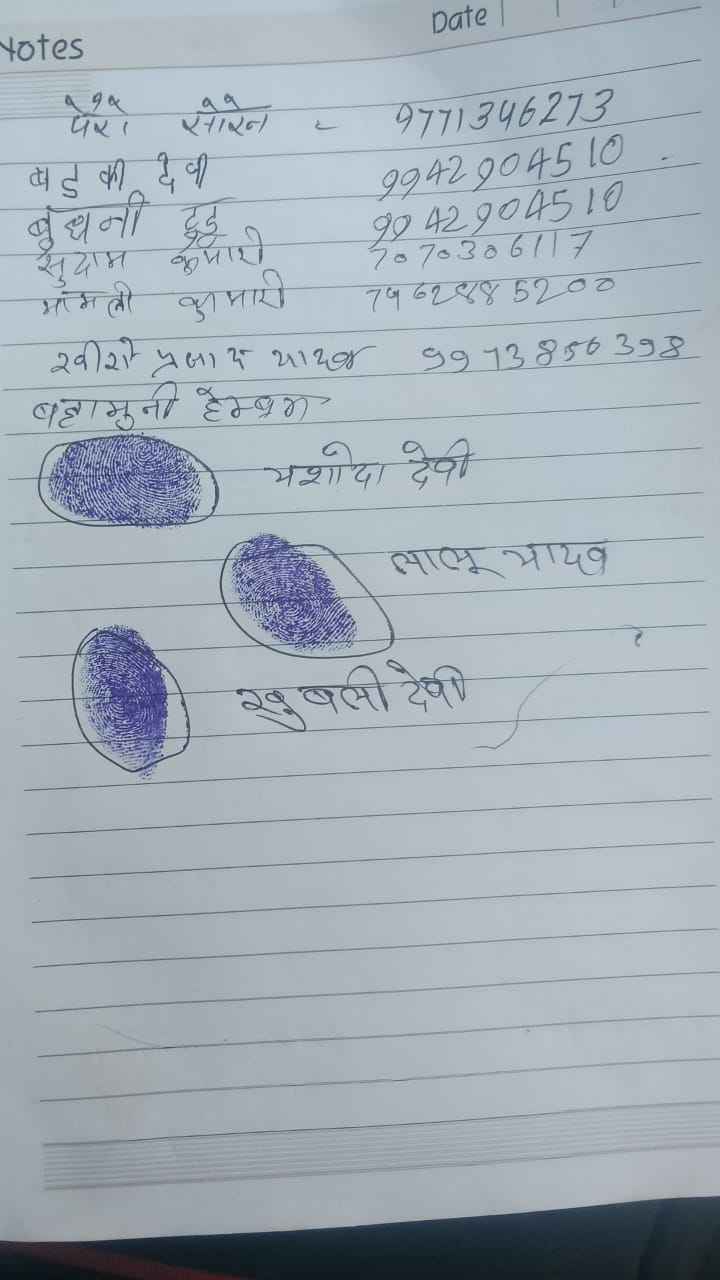 Notes
Date
पेरा सोरेन - 9771346273
बड़की देवी 9942904510
बुधनी टुडू 9942904510
सुदाम कुमारी 7070306117
मामली कुमारी 7462885200
प्रसाद यादव 9973856398
बहामुनी हेम्ब्रम
यशोदा देवी
लालू यादव
खुबली देवी